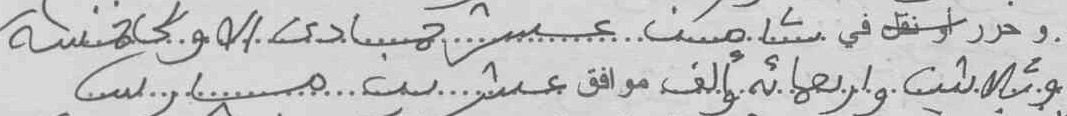 و حرر أو نقل في ثامن عشر جمادى الاولى خمسة
وثلاثين واربعمائة وألف موافق عشرين مارس